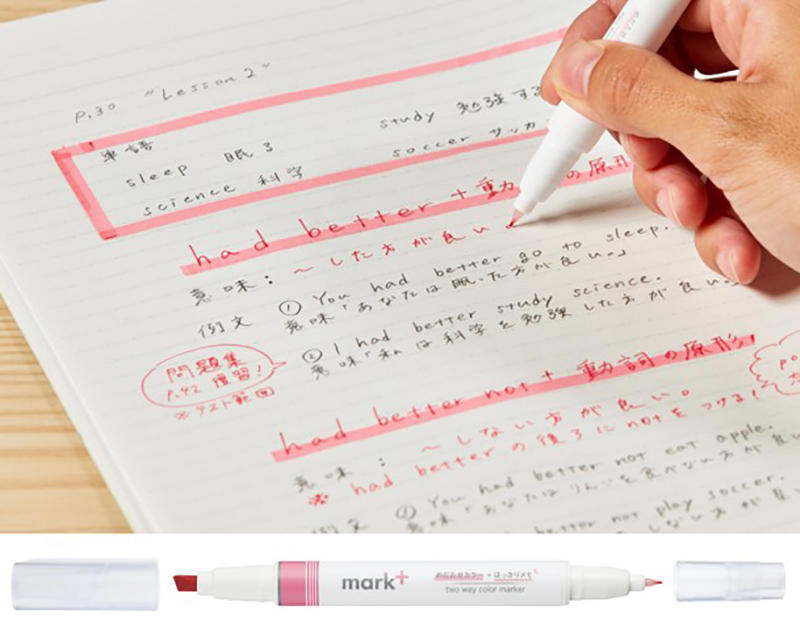 P.30 "Lesson 2"
単語
study 勉強する
sleep 眠る
soccer サッカ
science 科学
had better + 動 の原形
～した方が良い
意味:
例文
① You had better go to sleep.
意味「あなたは眠った方が良い。」
② I had better study science.
意味「私は科学を勉強した方が良い。
問題集
P.42 復習!
※テスト範囲
had better not + 動詞の原形
意味:
～しない方が良い。
※ had betterの後ろにnotをつける!
例文
① You had better not eat apple.
意味「あなたはりんごを食べない方が良い
better not play soccer.
mark+
めだたせカラー + はっきりメモ
two way color marker